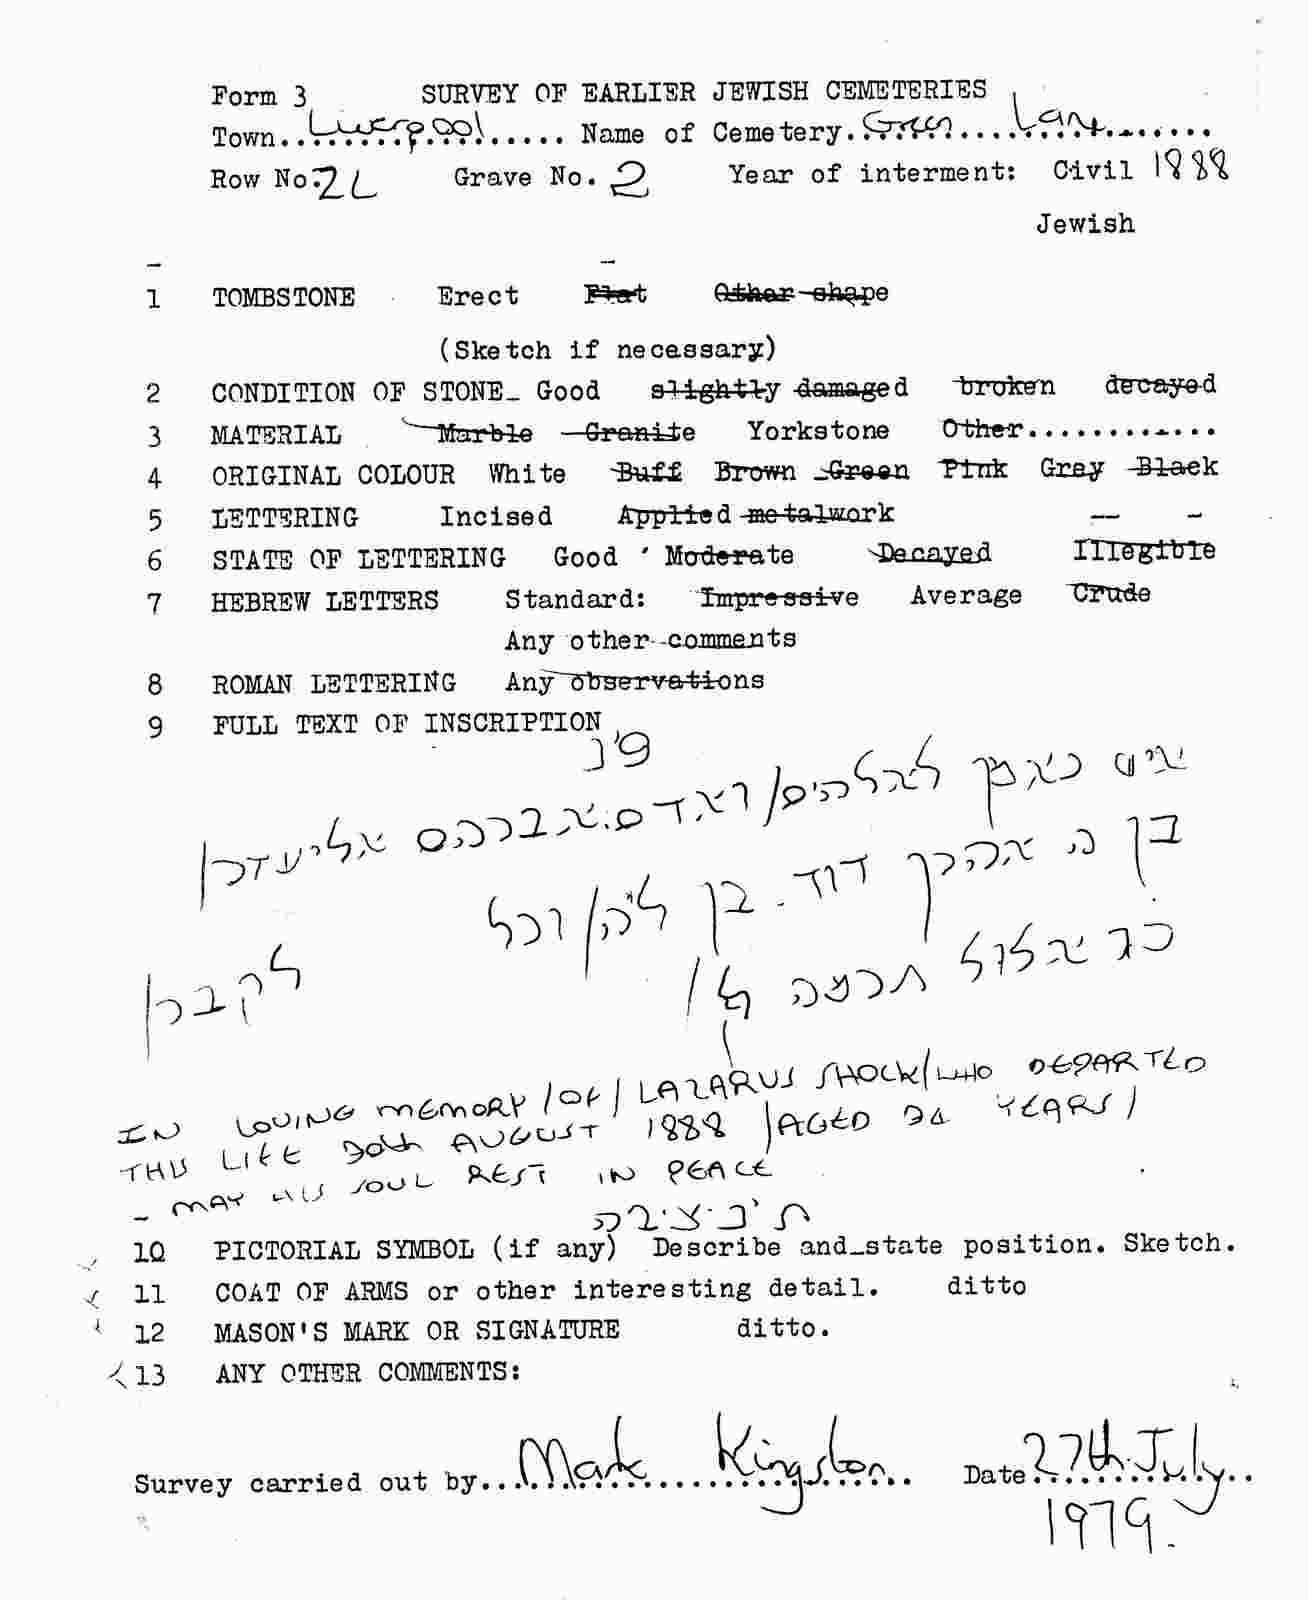 Form 3 SURVEY OF EARLIER JEWISH CEMETERIES
Town..Liverpool..... Name of Cemetery..Green Lane.......
Row No. 2L Grave No. 2 Year of interment: Civil 1888
Jewish
1 TOMBSTONE Erect Flat Other shape
(Sketch if necessary)
2 CONDITION OF STONE_ Good slightly damaged broken decayed
3 MATERIAL Marble Granite Yorkstone Other............
4 ORIGINAL COLOUR White Buff Brown Green Pink Grey Black
5 LETTERING Incised Applied metalwork
6 STATE OF LETTERING Good Moderate Decayed Illegible
7 HEBREW LETTERS Standard: Impressive Average Crude
Any other comments
8 ROMAN LETTERING Any observations
9 FULL TEXT OF INSCRIPTION
פ'נ
איש נאמן לאלהים/ואדם.אברהם אליעזר/
בן ה אהרן דוד. בן ל'ה/וכל
כג אלול תרמה /
לקבר/
IN LOVING MEMORY/OF/LAZARUS SHOCK/WHO DEPARTED
THIS LIFE 30th AUGUST 1888 /AGED 34 YEARS/
- MAY HIS SOUL REST IN PEACE
ת'נ'צ'ב'ה
10 PICTORIAL SYMBOL (if any) Describe and_state position. Sketch.
11 COAT OF ARMS or other interesting detail. ditto
12 MASON'S MARK OR SIGNATURE ditto.
13 ANY OTHER COMMENTS:
Survey carried out by...Mark Kingston.. Date 27th July
1979.